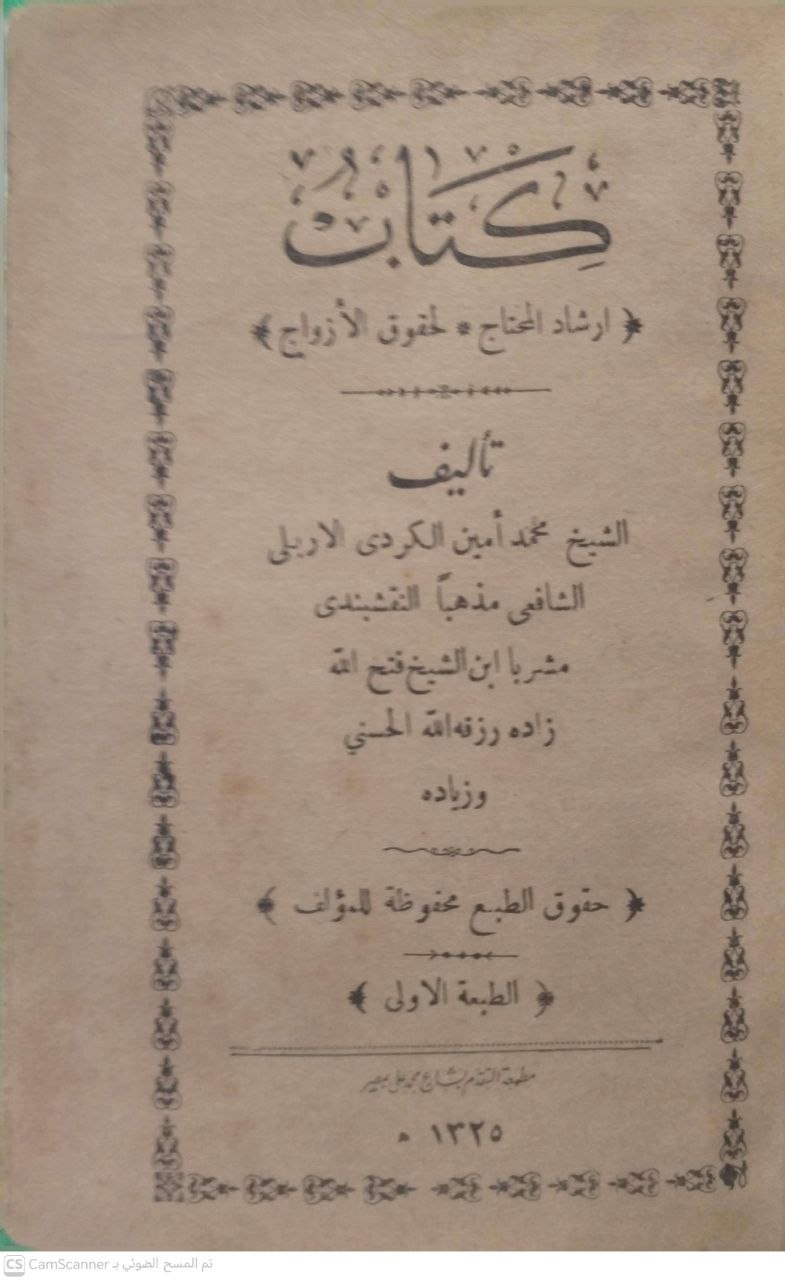 كتاب
﴿ ارشاد المحتاج * لحقوق الأزواج ﴾
تأليف
الشيخ محمد أمين الكردى الاربلى
الشافعى مذهباً النقشبندى
مشربا ابن الشيخ فتح الله
زاده رزقه الله الحسني
وزياده
﴿ حقوق الطبع محفوظة للمؤلف ﴾
﴿ الطبعة الاولى ﴾
مطبعة التقدم بشارع محمد على بمصر
١٣٢٥ ه
CS CamScanner تم المسح الضوئي بـ